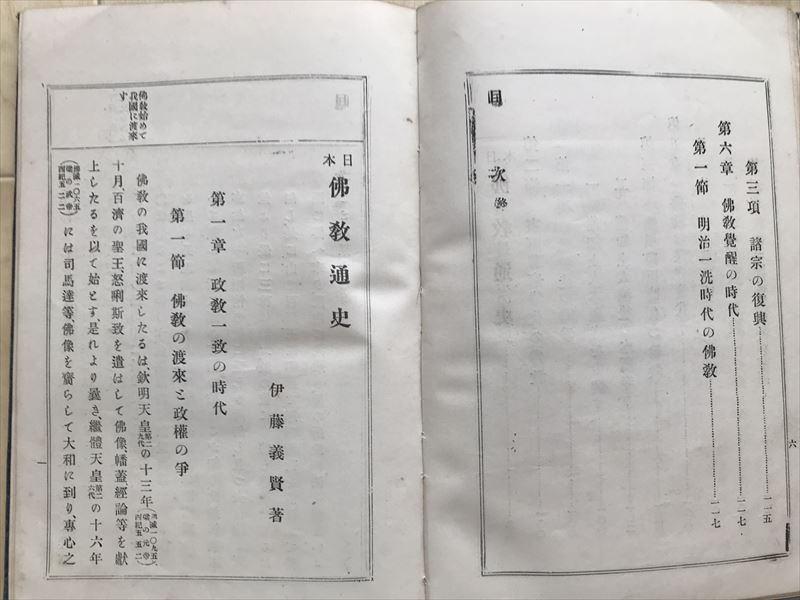 第三項 諸宗の復興……一一五
第六章 佛教覺醒の時代……一一七
第一節 明治一洗時代の佛教……一一七
目次(終)
六
日本佛教通史
伊藤義賢著
第一章 政教一致の時代
第一節 佛教の渡來と政權の爭
佛教始めて我國に渡來す
佛教の我國に渡來したるは、欽明天皇第二九代の十三年(佛滅一〇九五 梁の元帝 西紀五五二)
十月百濟の聖王、怒唎斯致を遣はして佛像、幡蓋、經論等を獻
上したるを以て始とす、是れより曩き、繼體天皇第二六代の十六年
(佛滅一〇六五 梁の武帝 西紀五二二)には司馬達等、佛像を齎らして大和に到り、專心之
一